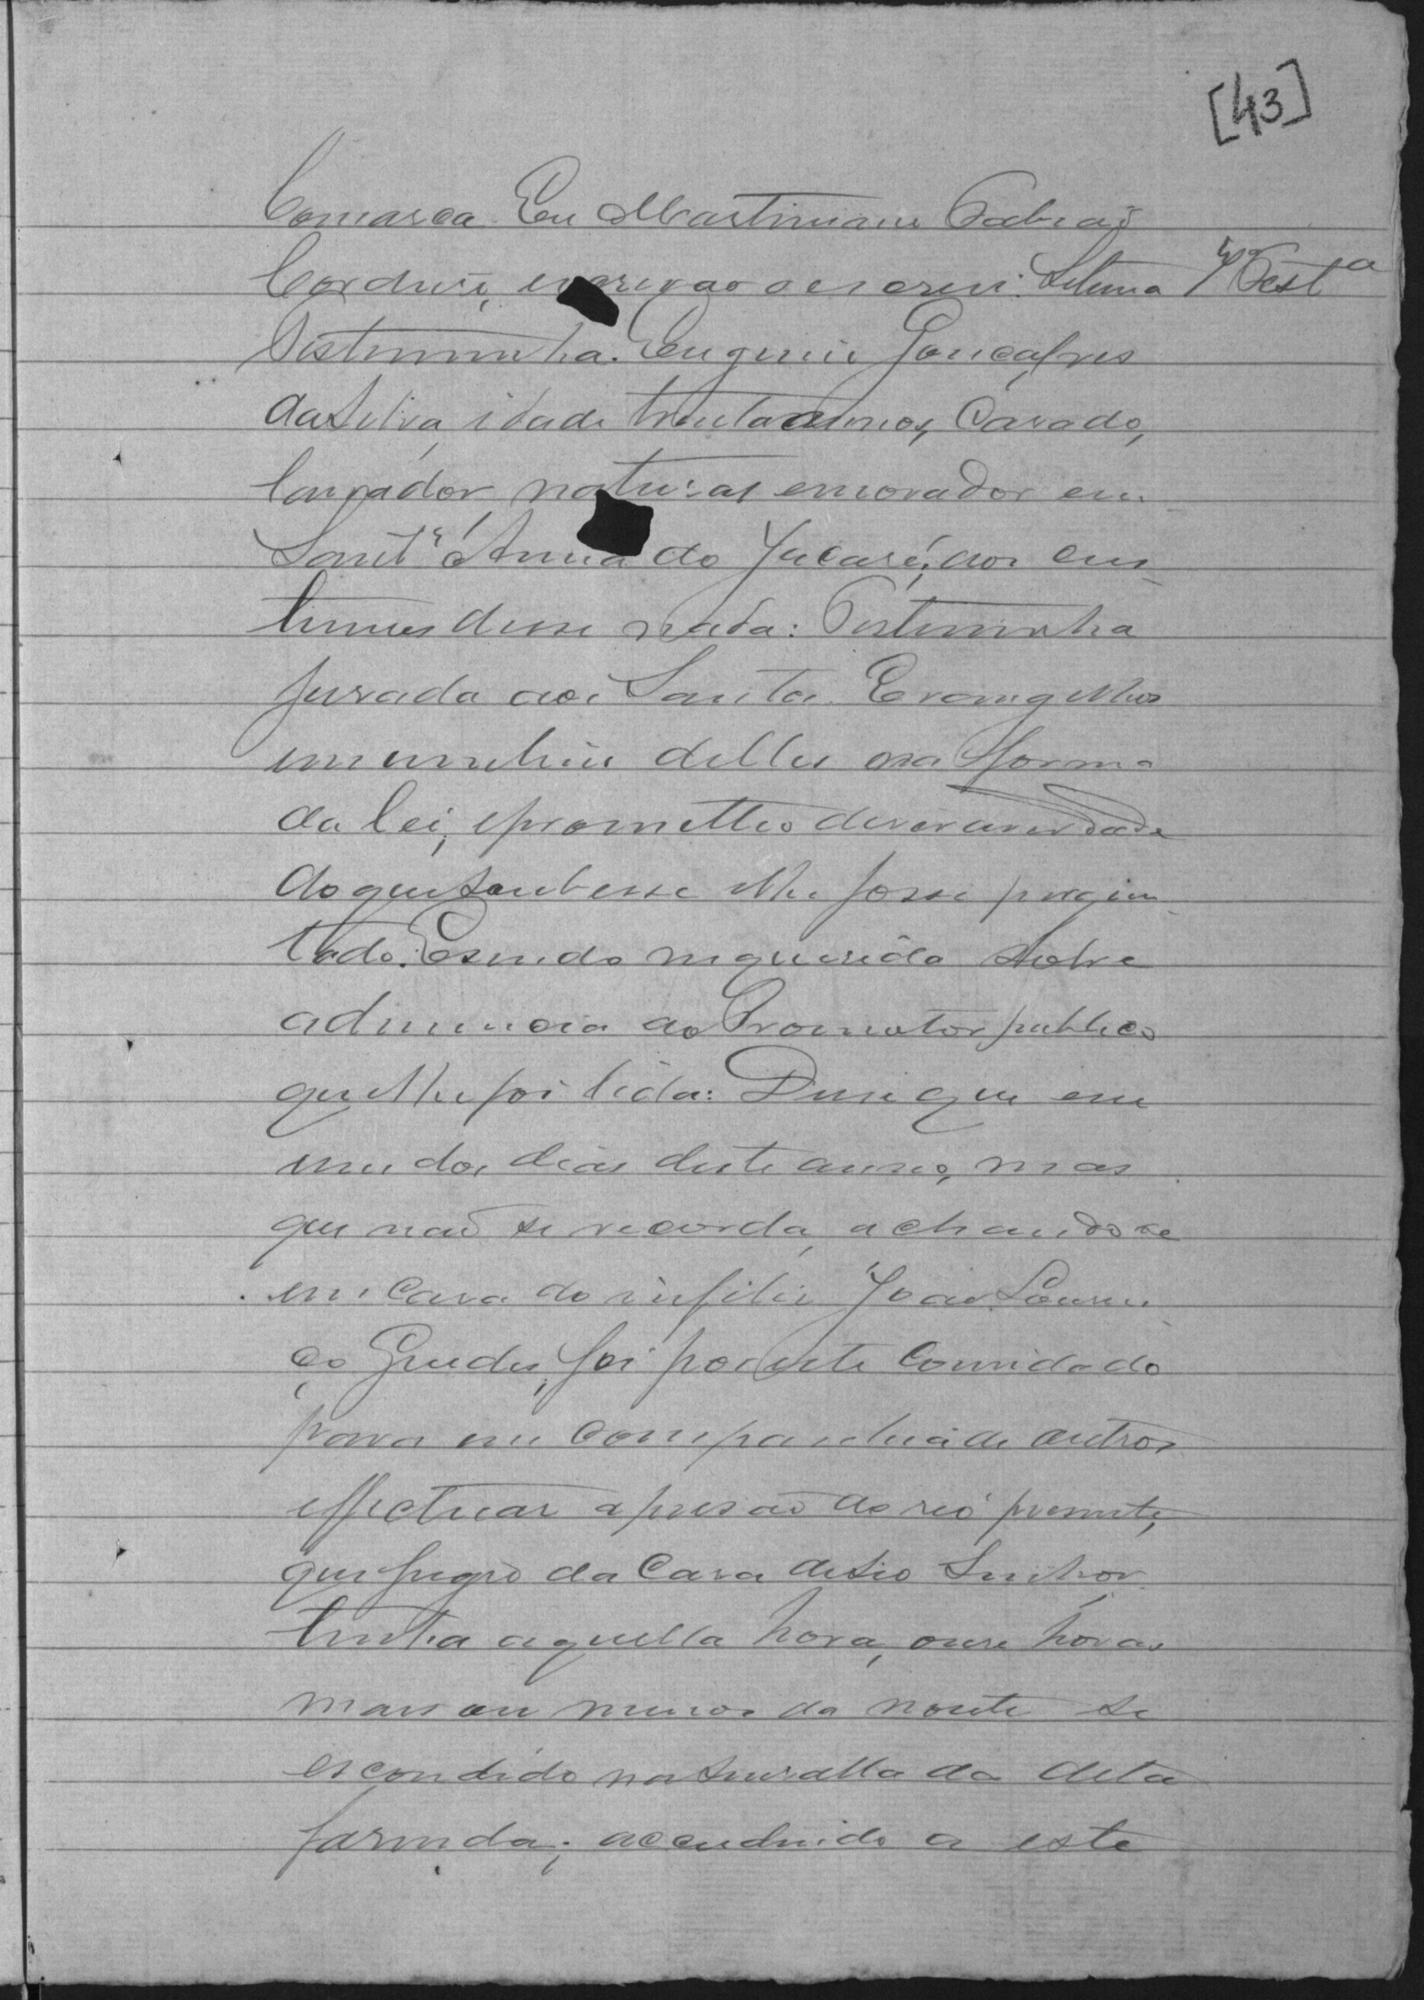 [43]
Comarca Eu Martimiano
escrivão o escrevi. Setima 7ª Testª
Testimunha. Eugenio Gonçalves
da Silva, idade trinta annos, Casado,
lavrador, natural e morador em
Sant'Anna do Jacaré, aos cus
tumes disse nada: Testimunha
jurada aos Santos Evangelhos
em um livro delles na forma
da lei, e prometteo diser a verdade
do que soubesse e lhe fosse pergun
tado. E sendo inquerido sobre
a denuncia do Promotor publico
que lhe foi lida: Disse que em
um dos dias deste anno, mas
que não se recorda, achando se
em casa do infeliz João Louren
ço Guedes, foi por este convidado
para em companhia de outros
effectuar a prisão do reo presente,
que fugio da casa de seo Senhor
tinha aquella hora, onze horas
mais ou menos da noute se
escondido na senzalla da dita
fasenda; accedendo a este